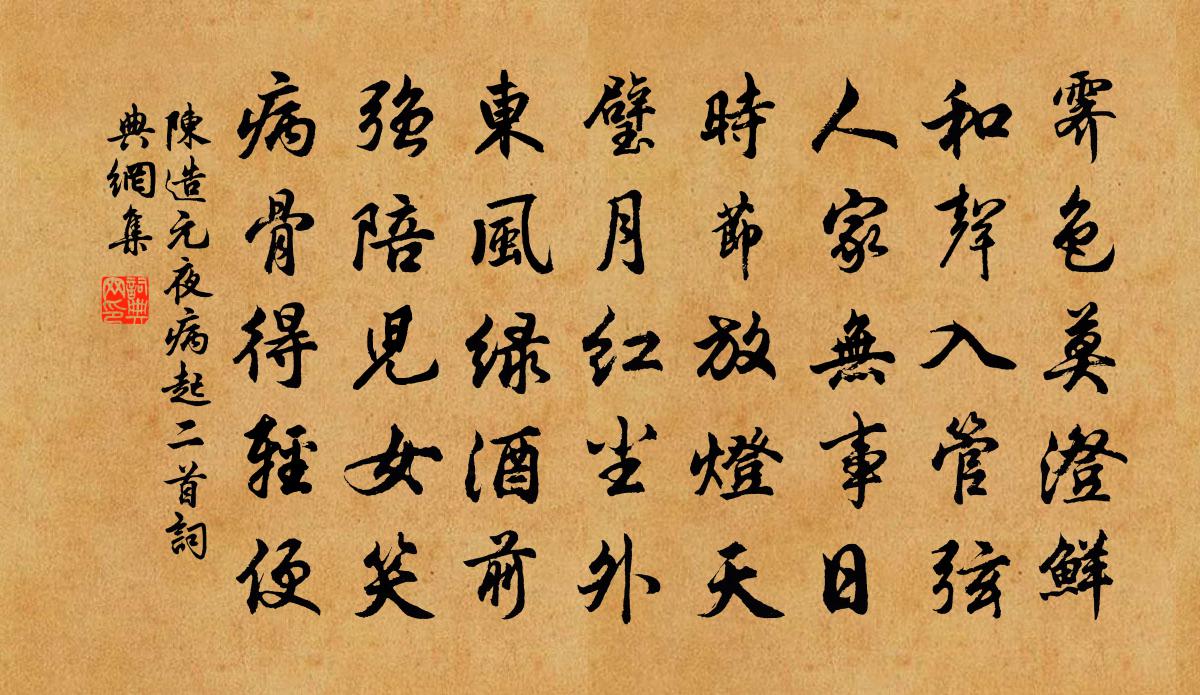 霽色莫澄鮮
和聲入管弦
人家無事日
時節放燈天
璧月紅尘外
東風緑酒前
強陪児女笑
病骨得輕便
陳造元夜病起二首詞
典網集
詞典網印